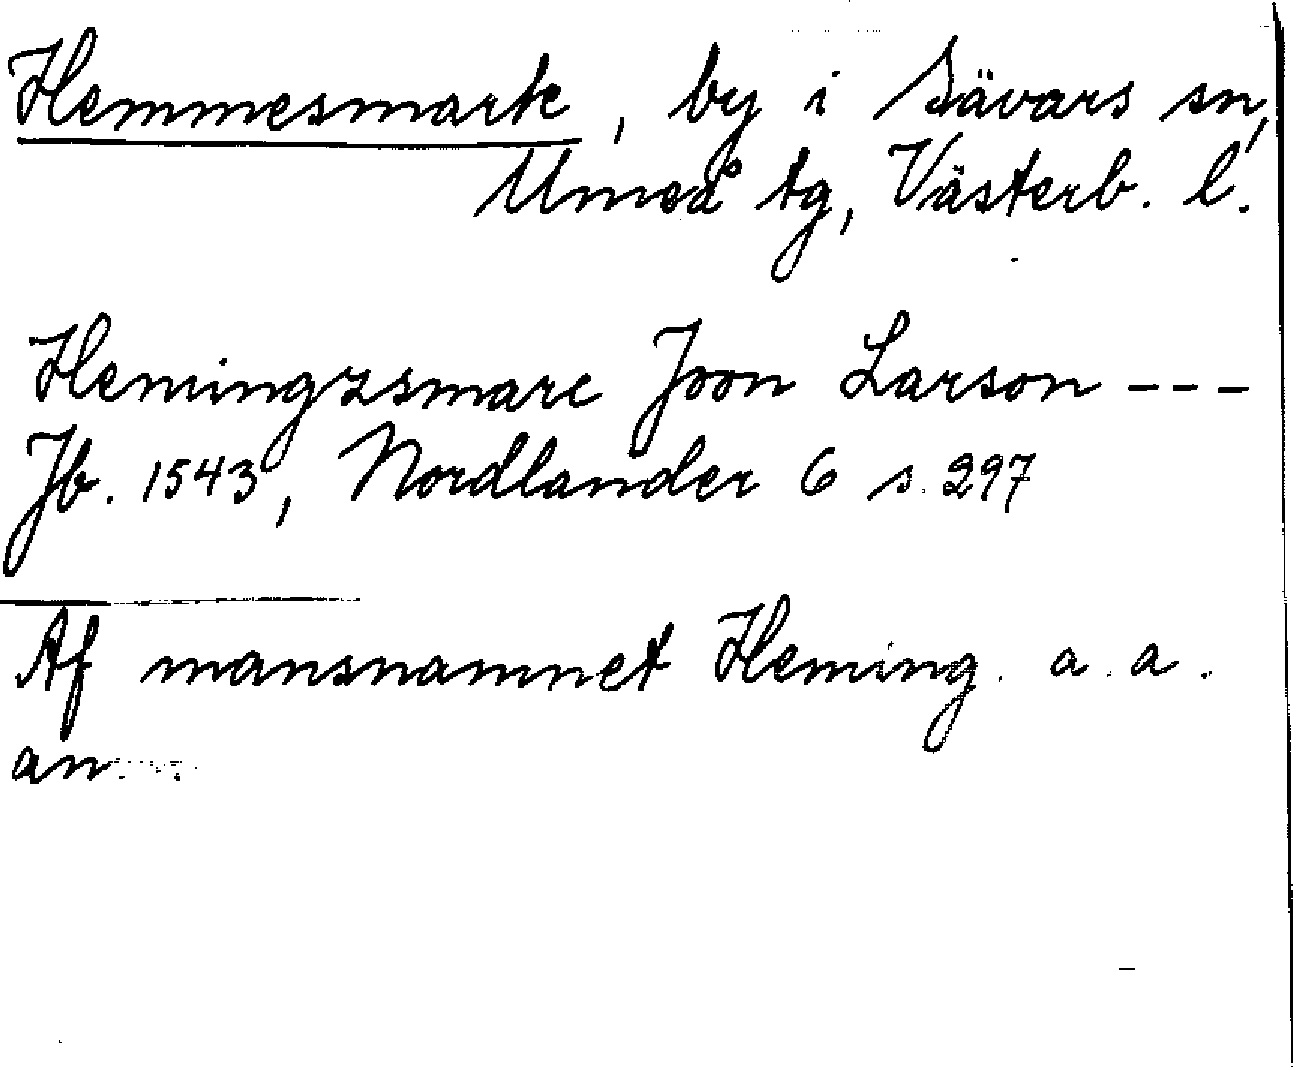 Hemmesmark, by i Sävars sn,
Umeå tg, Västerb. l.
Hemingzsmarc Joon Larson ---
Jb. 1543, Nordlander 6 s. 297
Af mansnamnet Heming. a. a.
an